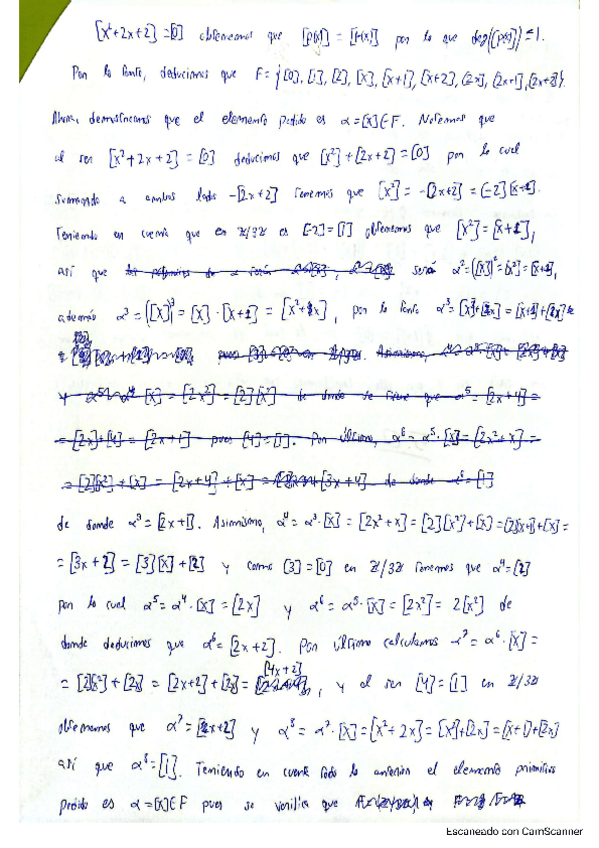 [x²+2x+2]=[0] obtenemos que [p(x)] = [r(x)] por lo que deg([p(x)]) ≤ 1.
Por lo tanto, deducimos que F = {[0], [1], [2], [x], [x+1], [x+2], [2x], [2x+1], [2x+2]}.
Ahora, demostremos que el elemento pedido es α=[x]∈F. Notemos que
al ser [x²+2x+2] = [0] deducimos que [x²]+[2x+2]=[0] por lo cual
sumando a ambos lados -[2x+2] tenemos que [x²] = -[2x+2] = [-2][x+1].
Teniendo en cuenta que en Z/3Z es [-2]=[1] obtenemos que [x²]=[x+1],
así que será α²=([x])²=[x²]=[x+1],
además α³=([x])³=[x]·[x+1] = [x²+x], por lo tanto α³=[x²]+[x]=[x+1]+[x]=
y α⁵=α⁴·[x] = [2x²] = [2][x²] de donde se tiene que α⁵ = [2x+4] =
=[2x]+[4] = [2x+1] pues [4]=[1]. Por último, α⁶=α⁵·[x]=[2x²+x] =
=[2][x²]+[x] = [2x+4]+[x] = [3x+4] de donde α⁶=[1]
de donde α³=[2x+1]. Asimismo, α⁴=α³·[x] = [2x²+x] = [2][x²]+[x]=[2][x+1]+[x]=
=[3x+2] = [3][x]+[2] y como [3]=[0] en Z/3Z tenemos que α⁴=[2]
por lo cual α⁵=α⁴·[x]=[2x] y α⁶=α⁵·[x]=[2x²] = 2[x²] de
donde deducimos que α⁶=[2x+2]. Por último calculamos α⁷=α⁶·[x]=
=[2x²]+[2x] = [2x+2]+[2x]=[4x+2], y al ser [4]=[1] en Z/3Z
obtenemos que α⁷=[x+2] y α⁸=α⁷·[x]=[x²+2x]=[x²]+[2x]=[x+1]+[2x]
así que α⁸=[1]. Teniendo en cuenta todo lo anterior el elemento primitivo
pedido es α=[x]∈F pues se verifica que
Escaneado con CamScanner